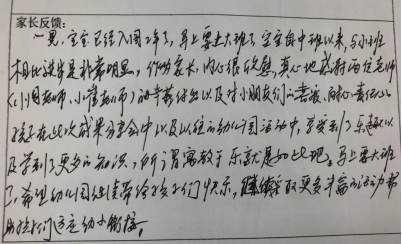 家长反馈：
一晃，宝宝已经入园2年了，马上要上大班了，宝宝自中班以来，与小班
相比进步是非常明显，作为家长，内心很欣慰，真心地感谢两位老师
（小周老师、小崔老师）的辛勤付出以及对小朋友们的喜爱、耐心、责任心。
孩子在此次成果分享会中以及以往的幼儿园活动中，享受到了乐趣以
及学到了更多的知识，所谓寓教于乐就是如此吧。马上要大班
了，希望幼儿园继续带给孩子们快乐，继续采取更多丰富的活动帮
助孩子们过完幼小衔接。